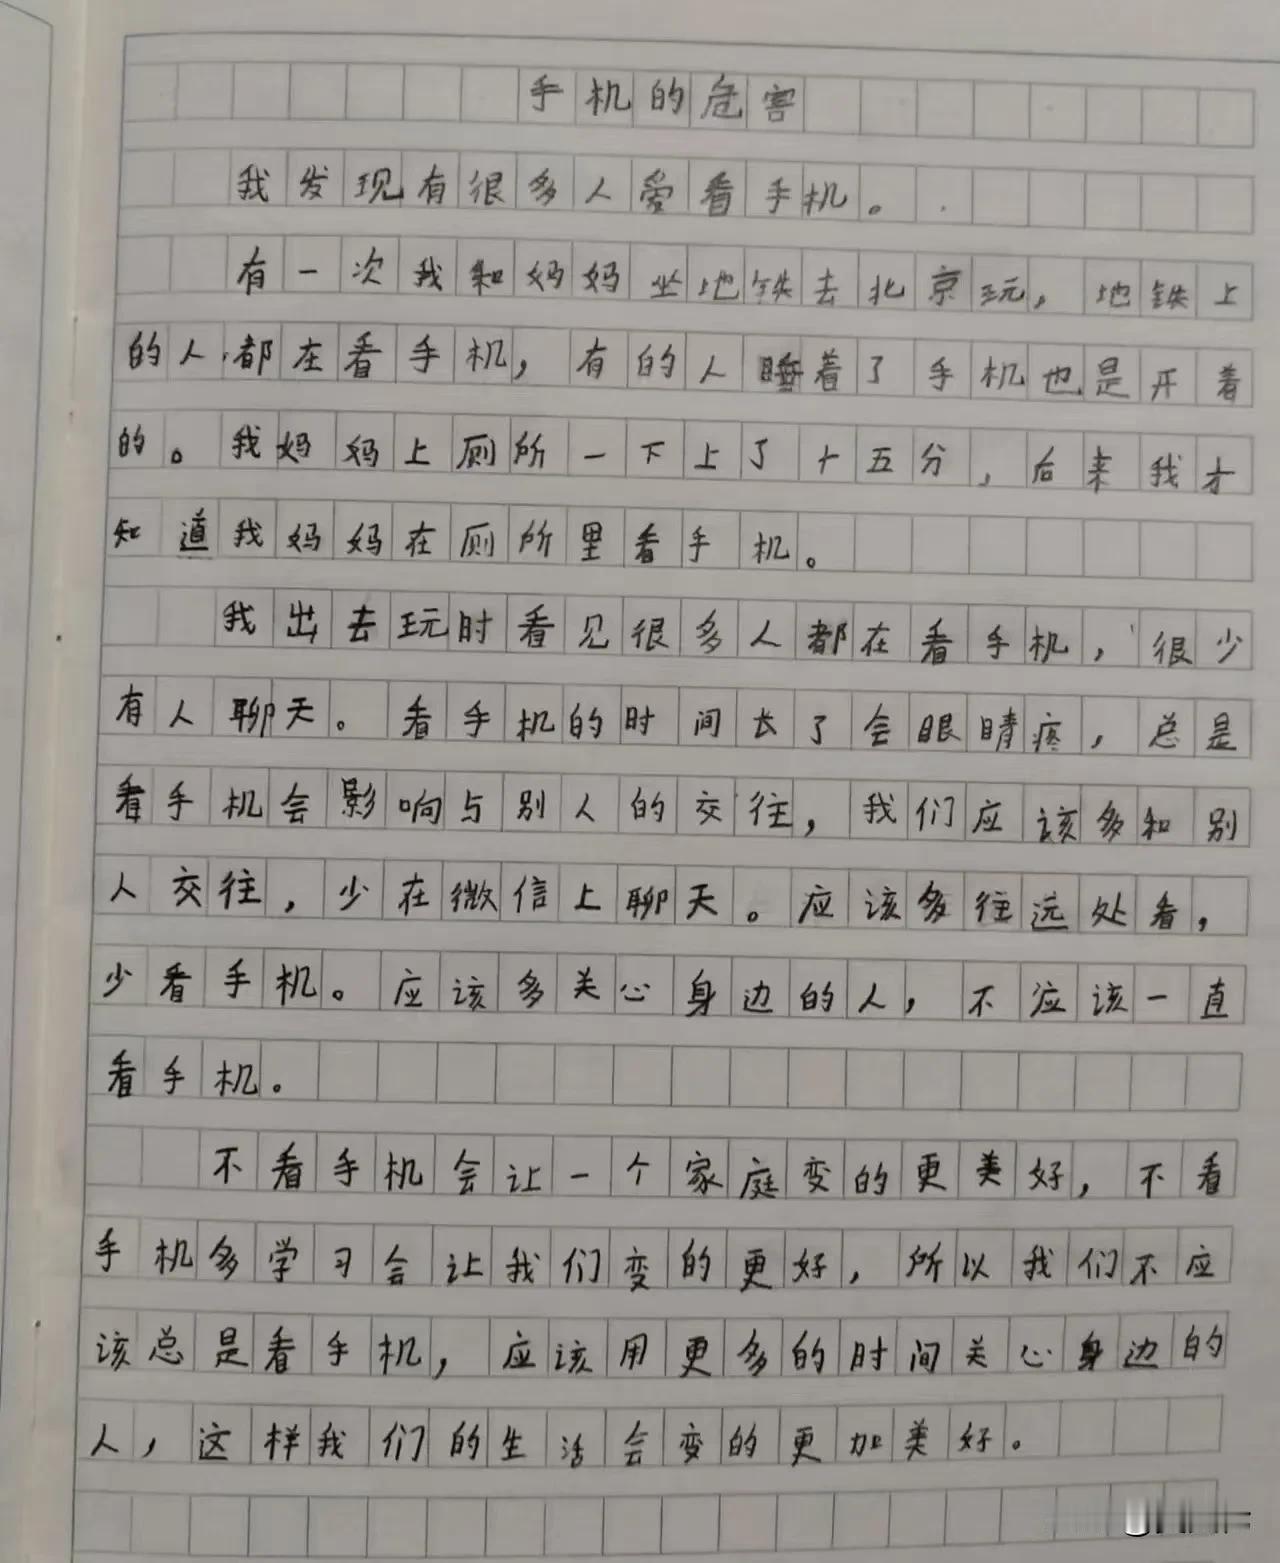 手机的危害
我发现有很多人爱看手机。
有一次我和妈妈坐地铁去北京玩，地铁上
的人都在看手机，有的人睡着了手机也是开着
的。我妈妈上厕所一下上了十五分，后来我才
知道我妈妈在厕所里看手机。
我出去玩时看见很多人都在看手机，很少
有人聊天。看手机的时间长了会眼睛疼，总是
看手机会影响与别人的交往，我们应该多和别
人交往，少在微信上聊天。应该多往远处看，
少看手机。应该多关心身边的人，不应该一直
看手机。
不看手机会让一个家庭变的更美好，不看
手机多学习会让我们变的更好，所以我们不应
该总是看手机，应该用更多的时间关心身边的
人，这样我们的生活会变的更加美好。